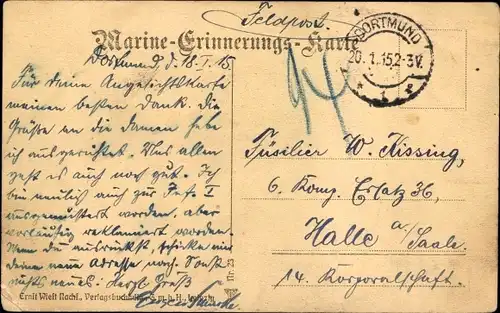 Feldpost.
Marine-Erinnerungs-Karte
DORTMUND 1
20.1.15.2-3V.
Dortmund, d. 18.I.15
Für deine Angesichtskarte
meinen besten Dank. Die
Grüße an die Damen habe
ich ausgerichtet. Uns allen
geht es auch noch gut. Ich
bin neulich auch zur Inf. I
ausgemustert worden, aber
vorläufig reklamiert worden.
Wenn du ausrückst, schicke mir
deine neue Adresse noch. Sonst
nichts neues. Herzl. Gruß
94
Füsilier W. Kissing,
6. Komp. Ersatz 36,
Halle a/Saale.
14. Korporalschaft.
Nr. 23
Ernst Wiest Nachf., Verlagsbuchh. G.m.b.H., Leipzig